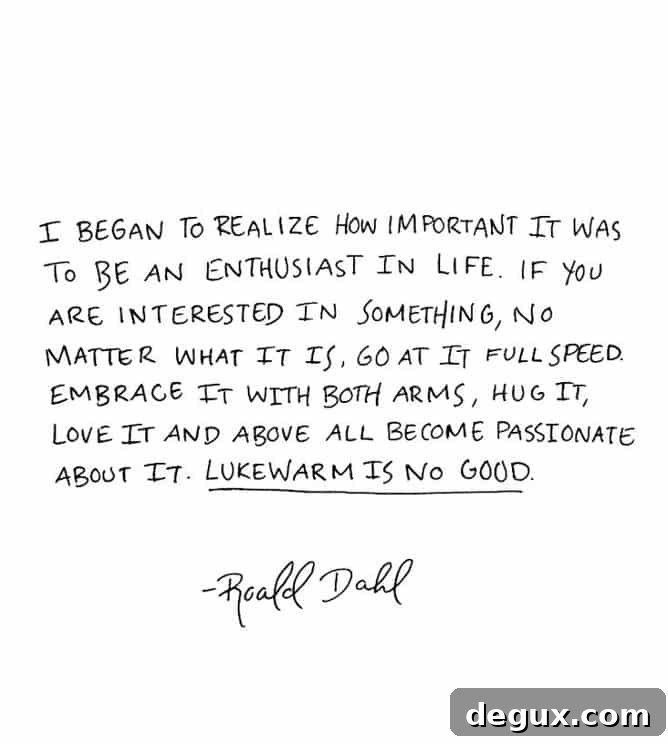 I BEGAN TO REALIZE HOW IMPORTANT IT WAS
TO BE AN ENTHUSIAST IN LIFE. IF YOU
ARE INTERESTED IN SOMETHING, NO
MATTER WHAT IT IS, GO AT IT FULL SPEED.
EMBRACE IT WITH BOTH ARMS, HUG IT,
LOVE IT AND ABOVE ALL BECOME PASSIONATE
ABOUT IT. LUKEWARM IS NO GOOD.
-Roald Dahl
degux.com